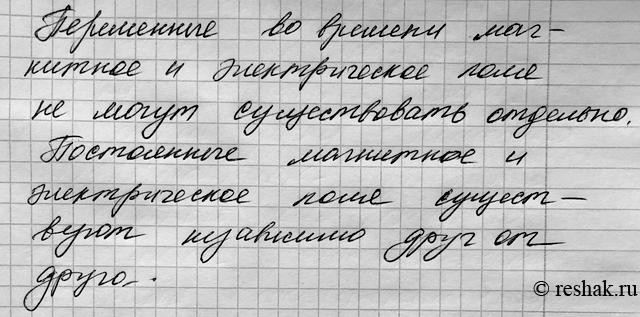 Переменные во времени маг-
нитное и электрическое поле
не могут существовать отдельно.
Постоянные магнитное и
электрическое поле сущест-
вуют независимо друг от
друга.
© reshak.ru